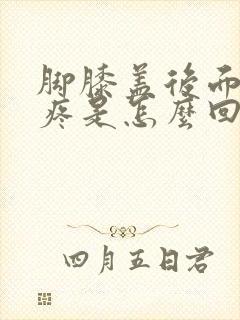 脚膝盖后面
疼是怎麽回
四月五日君